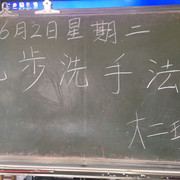 6月2日星期二
步洗手法
大二班